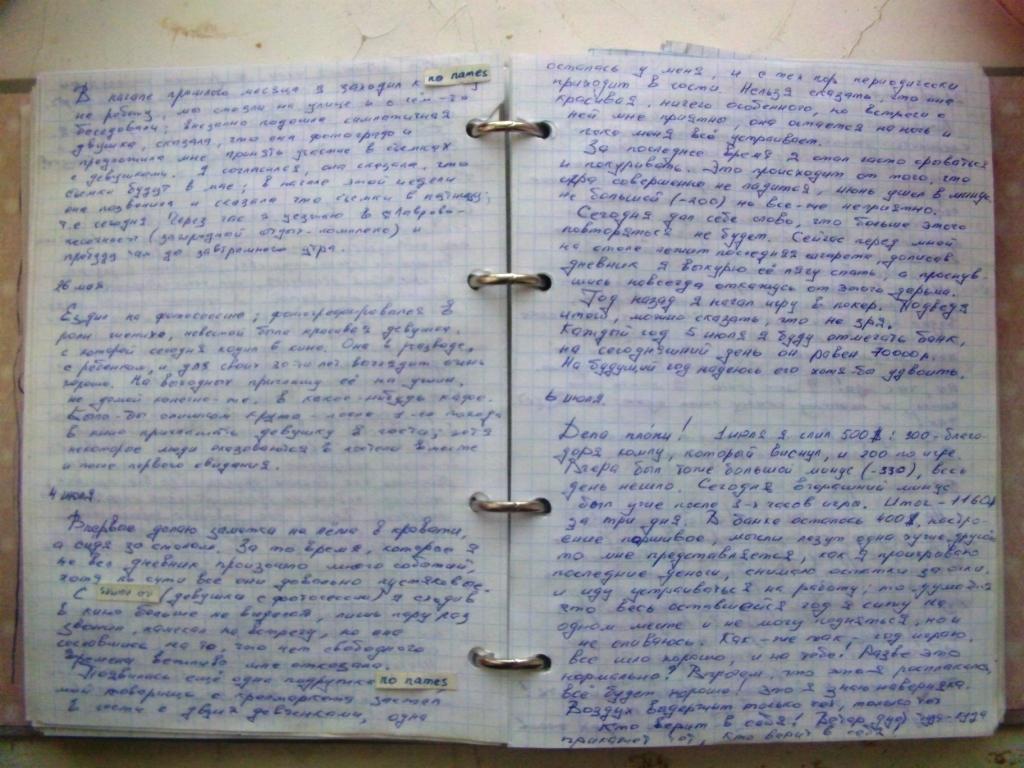 В начале прошлого месяца я заходил к no names
на работу, мы стояли на улице и о чём-то
беседовали; внезапно подошла симпатичная
девушка, сказала, что она фотограф и
предложила мне принять участие в съёмках
с девушками. Я согласился, она сказала, что
съёмки будут в мае; в начале этой недели
она позвонила и сказала что съёмки в пятницу;
т.е. сегодня. Через час я уезжаю в
(загородный отдых-комплекс) и
приеду там до завтрашнего утра.
26 мая
Ездил на фотосессию; фотографировался в
роли жениха, невестой была красивая девушка,
с которой сегодня ходил в кино. Она в разводе,
с ребёнком, и для своих 30-ти лет выглядит очень
хорошо. На выходных приглашу её на ужин,
не домой конечно-же, в какое-нибудь кафе.
Было-бы слишком круто - после 1-го похода
в кино приглашать девушку в гости; хотя
некоторые люди оказываются в постели вместе
и после первого свидания.
4 июля.
Впервые делаю заметки не лёжа в кровати,
а сидя за столом. За то время, которое я
не вёл дневник произошло много событий,
хотя по сути все они довольно пустяковые.
С (девушка с фотосессии) я сходив
в кино больше не виделся, лишь пару раз
звонил, намекал на встречу, но она
сославшись на то, что нет свободного
времени вежливо мне отказала.
Появилась ещё одна подружка no names
мой товарищ с
в гости с двумя девчёнками, одна
осталась у меня, и с тех пор периодически
приходит в гости. Нельзя сказать, что она
красивая, ничего особенного, но встречи с
ней мне приятны, она остаётся на ночь и
пока меня всё устраивает.
За последнее время я стал часто срываться
и покуривать. Это происходит от того, что
игра совершенно не ладится, июнь ушёл в минус,
не большой (-200) но все-же неприятно.
Сегодня дал себе слово, что больше этого
повторяться не будет. Сейчас перед мной
на столе лежит последняя сигарета, дописав
дневник я выкурю её лягу спать, а проснув-
шись навсегда откажусь от этого дерьма.
Год назад я начал игру в покер. Подведя
итоги, можно сказать, что не зря.
Каждый год 5 июля я буду отмечать банк,
на сегодняшний день он равен 70000р.
На будущий год надеюсь его хотя-бы удвоить.
6 июля.
Дела плохи! 1 июля я слил 500$: 300-благо-
даря компу, который виснул, и 200 по игре.
Вчера был тоже большой минус (-330), весь
день не шло. Сегодня вчерашний минус
был уже после 3-х часов игры. Итог -1160$
за три дня. В банке осталось 400$, настро-
ение паршивое, мысли лезут одна хуже другой
то мне представляется, как я проигрываю
последние деньги, снимаю остатки
и иду устраиваться на работу; то думается
что весь оставшийся год я сижу на
одном месте и не могу подняться, но и
не сливаюсь. Как-же так - год играю,
все шло хорошо, и на тебе! Разве это
нормально? Впрочем, что это я расплакался,
всё будет хорошо! Это я знаю наверняка.
Воздух выдержит только тех, только тех
Кто верит в себя! Ветер дует туда-куда
прикажет тот, кто верит в себя